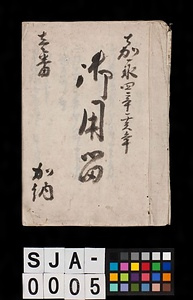 嘉永四年
御用留
壱番
加納
SJA-
0005